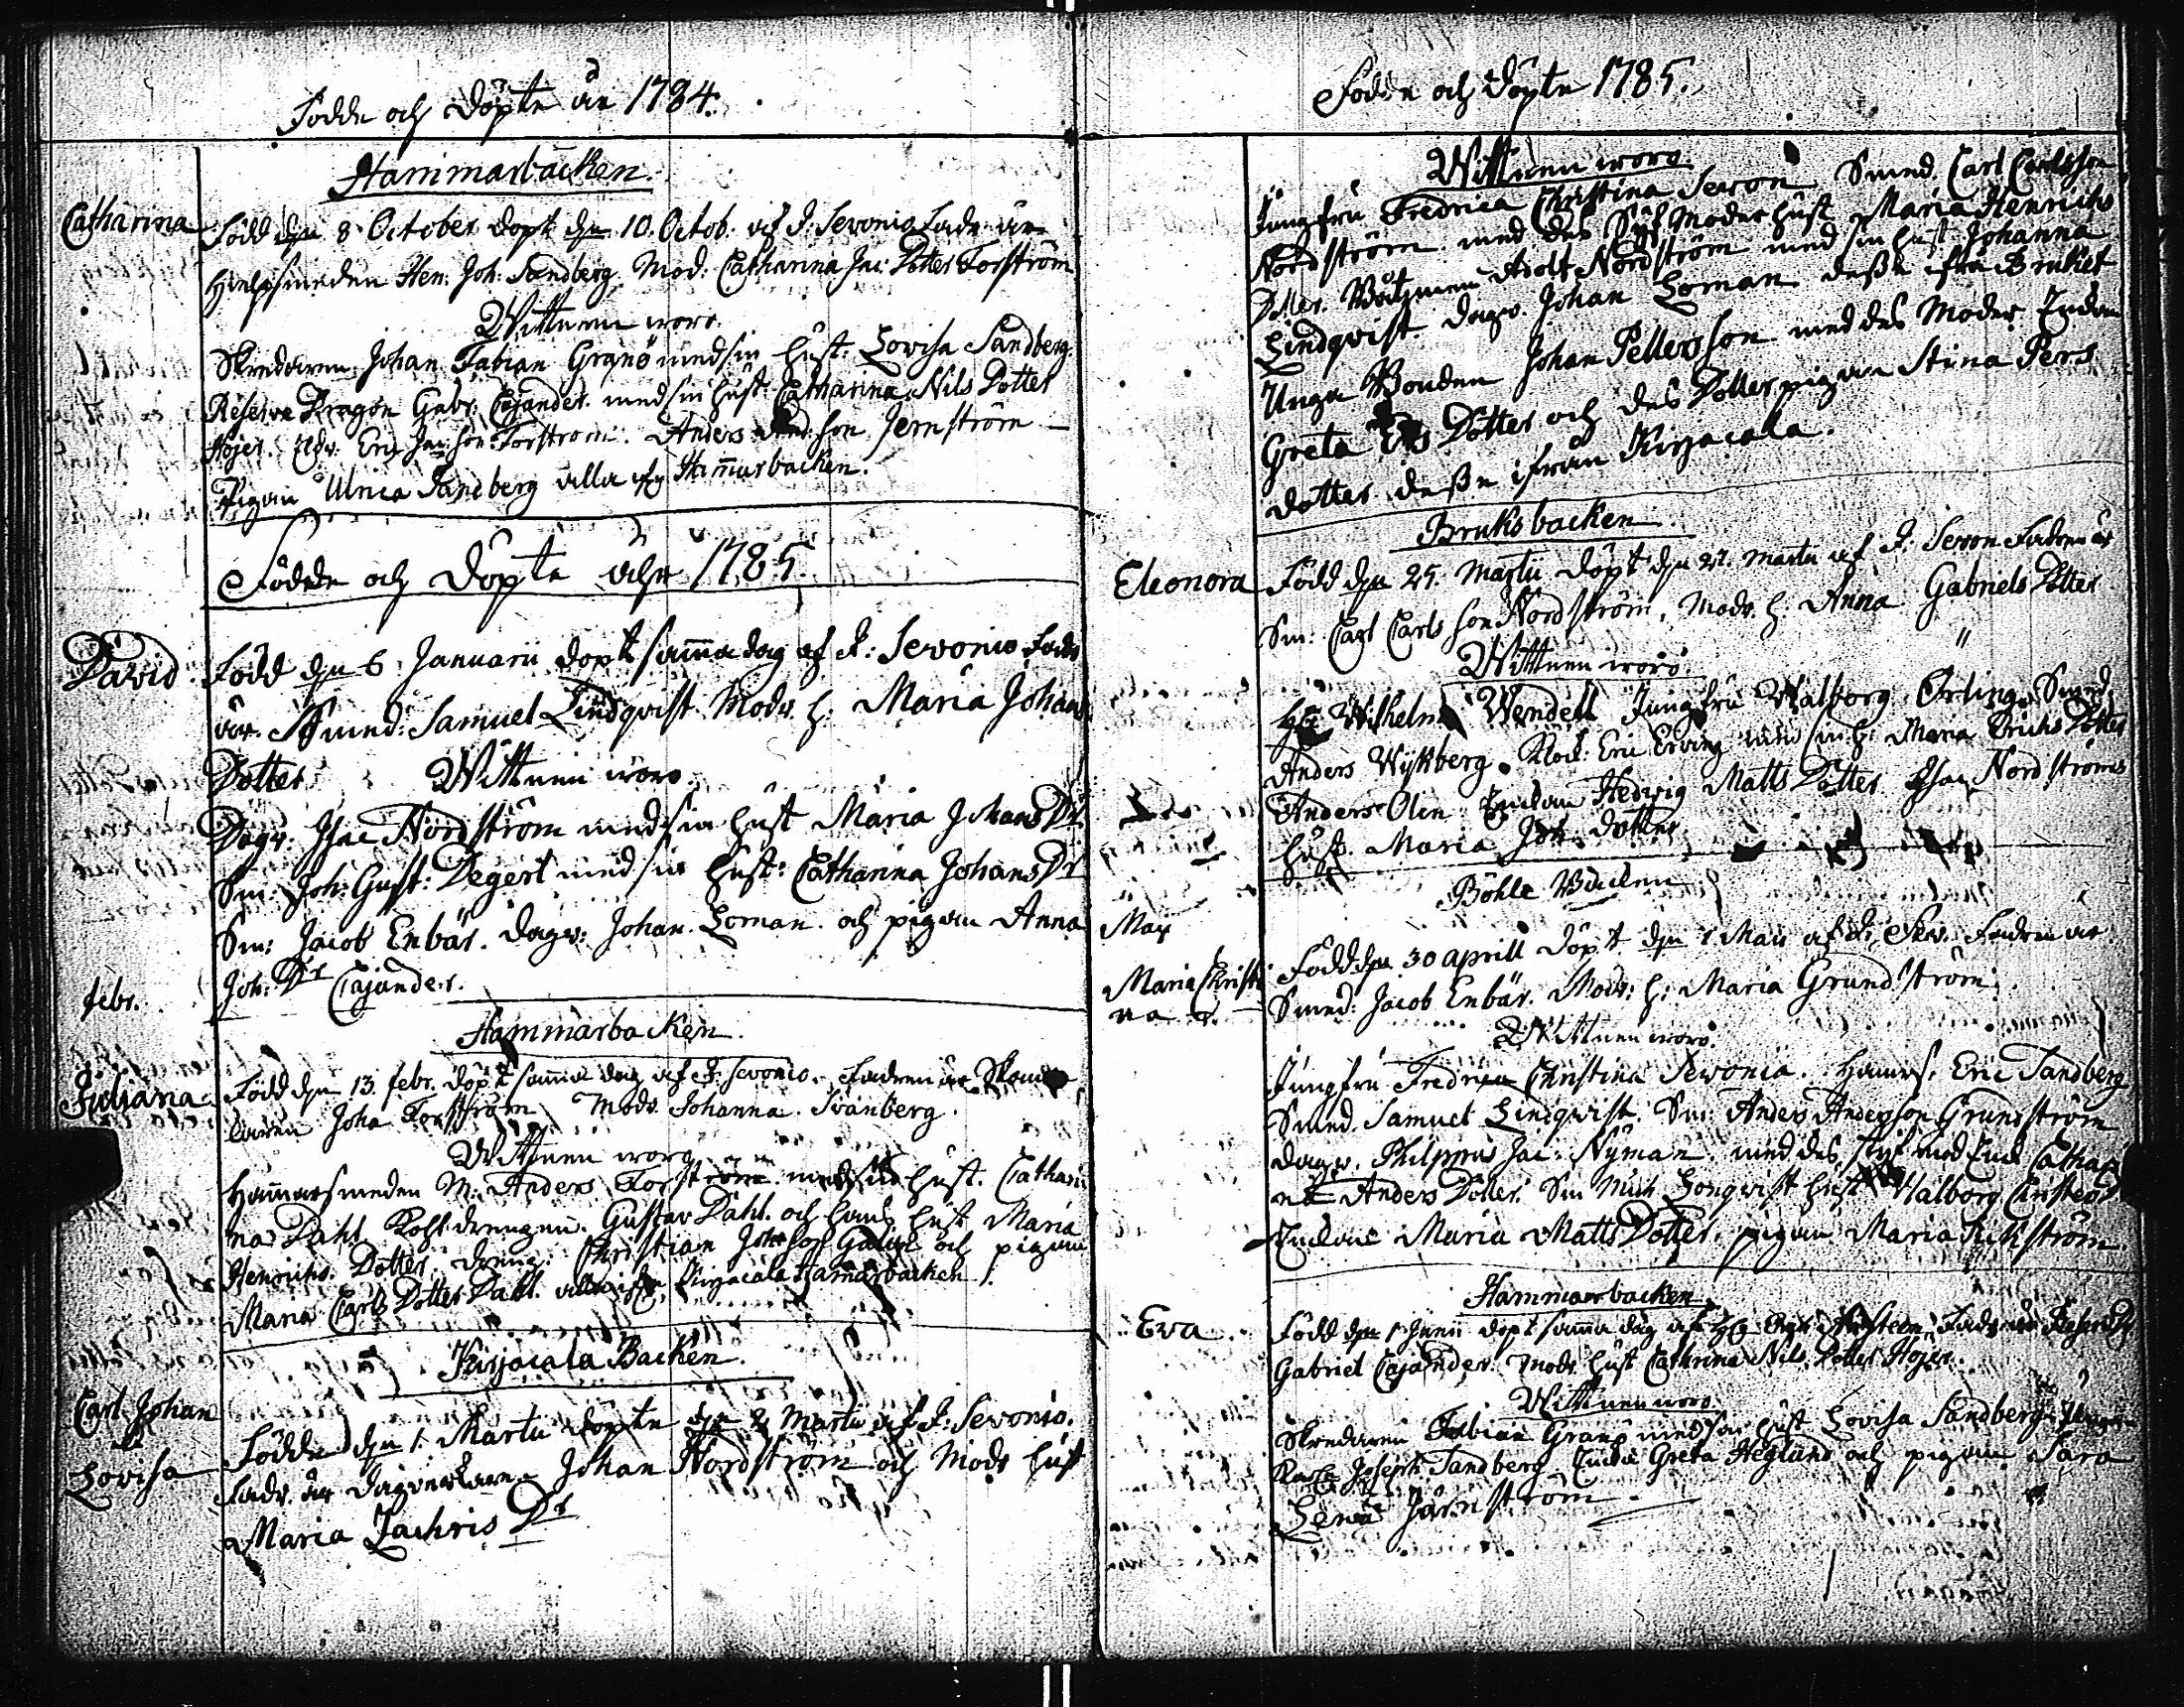 Födde och döpte år 1784.
Hammarbacken.
Catharina Född den 8 October döpt den 10. Octob. af J: Sevonio Fadr är
Hielpsmeden Hen: Joh: Sandberg. Mod: Catharina Jac: Dotter Forström
Wittnen woro.
Skredaren Johan Fabian Granö med sin hust: Lovisa Sandberg.
Reserve Dragon Gabr: Cajander med sin hust: Catharina Nils Dotter
Höjer. Eric Jac: son Forström. Anders son Jernström
Pigan Ulrica Sandberg alla ifrå Hammarbacken.
Födde och döpte åhr 1785.
David Född den 6 Januarii döpt samma dag af J: Sevonio Fadr
är Smed: Samuel Lindqvist Modr. h: Maria Johans
Dotter Wittnen woro.
Dagv: Isac Nordström med sin hust Maria Johans Dr
Sm: Joh: Gust: Degert med sin hust: Catharina Johans Dr
Sm: Jacob Enbär. dagv: Johan Loman och pigan Anna
Joh: Dr Cajander.
febr.
Hammarbacken.
Juliana Född den 13. febr. döpt samma dag af J. Sevonio. Fadren är
Joha Forström Modr. Johanna Svanberg.
Wittnen woro
Hammarsmeden M: Anders Forström med sin hust. Cathari
na Dahl. Kohldrengen Gustav Dahl. och hust Maria
Henrichs Dotter. dreng: Christian och pigan
Maria Carls Dotter Dahl. Kirjacala Hammarbacken.
Kirjacala Backen.
Carl Johan och Lovisa
Födde den 1. Martii döpte den 2 Martii af J: Sevonio.
Fadr. är dagverkaren Johan Nordström och Modr hust
Maria Zachris Dr
Födde och döpte 1785.
Wittnen woro
Jungfru Fredrica Christina Sevon Smed. Carl Carlsson
Nordström med des Styf Moder hust Maria Henrichs
Dotter. Båtzmen Adolf Nordström med sin hust Johanna
Lindqvist. dagv. Johan Loman desse ifrå Bruket
Unga Bonden Johan Pettersson med des Moder Enkan
Greta Dotter och des Dotter pigan Stina Pers
dotter desse ifrån Kirjacala.
Bruksbacken.
Eleonora Född den 25. Martii döpt den 27. Martii af J. Sevon Fadren är
Sm: Carl Carlsson Nordström, Modr. h: Anna Gabriels Dotter
Wittnen woro.
Wilhelm Wendell Jungfru Walborg Örling. Smed.
Anders Wijkberg. Klock: Eric Erving med sin h: Maria Erichs Dotter
Anders Olin Enkan Hedvig Matts Dotter Isac Nordströms
hust. Maria Joh: dotter
Böhle
May
Maria Christi
na
Född den 30 aprill döpt den 1 Maii af J: Sev: Fadren är
Smed: Jacob Enbär. Modr: h: Maria Grundström.
Wittnen woro.
Jungfru Fredrica Christina Sevonia. Hamars. Eric Sandberg
Smed. Samuel Lindqvist. Sm: Anders Andersson Grundström
dagv. Philippus Jac: Nyman. med des styf mod Enk Catha
na Anders Dotter. Sm Mich Lönqvist hust Walborg
Enkan Maria Matts Dotter. pigan Maria
Hammarbacken
Eva Född den 1 Junii döpt samma dag af Fadr är
Gabriel Cajander. Modr hust Cathrina Nils Dotter Höjer.
Wittnen woro.
Skredaren Fabian Granö med sin hust Lovisa Sandberg.
Joseph Sandberg. Enka Greta Heglund och pigan Sara
Lena Järnström.